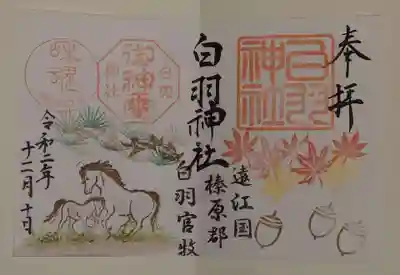 奉拝
白羽神社
遠江国
榛原郡
白羽神社
白羽官牧
白羽
神社
令和二年
十二月十日